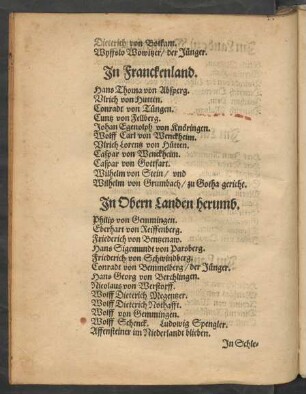 Dieterich von Botkam.
Wypffolo Wowitzer/ der Jünger.
In Franckenland.
Hans Thoma von Absperg.
Vlrich von Hutten.
Conradt von Tüngen.
Cuntz von Fellberg.
Johan Egenolph von Knöringen.
Wolff Carl von Wenckheim.
Vlrich Lorentz von Hütten.
Caspar von Wenckheim.
Caspar von Gottfart.
Wilhelm von Stein/ vnd
Wilhelm von Grumbach/ zu Gotha gericht.
In Obern Landen herumb.
Philip von Gemmingen.
Eberhart von Reiffenberg.
Friederich von Bentzenaw.
Hans Sigemundt von Parsberg.
Friederich von Schwindberg.
Conradt von Bemmelberg/ der Jünger.
Hans Georg von Berchlingen.
Nicolaus von Werstorff.
Wolff Dieterich Megentzer.
Wolff Dieterich Nothafft.
Wolff von Gemmingen.
Wolff Schenck. Ludowig Spengler.
Affensteiner im Niederlandt blieben.
In Schle-